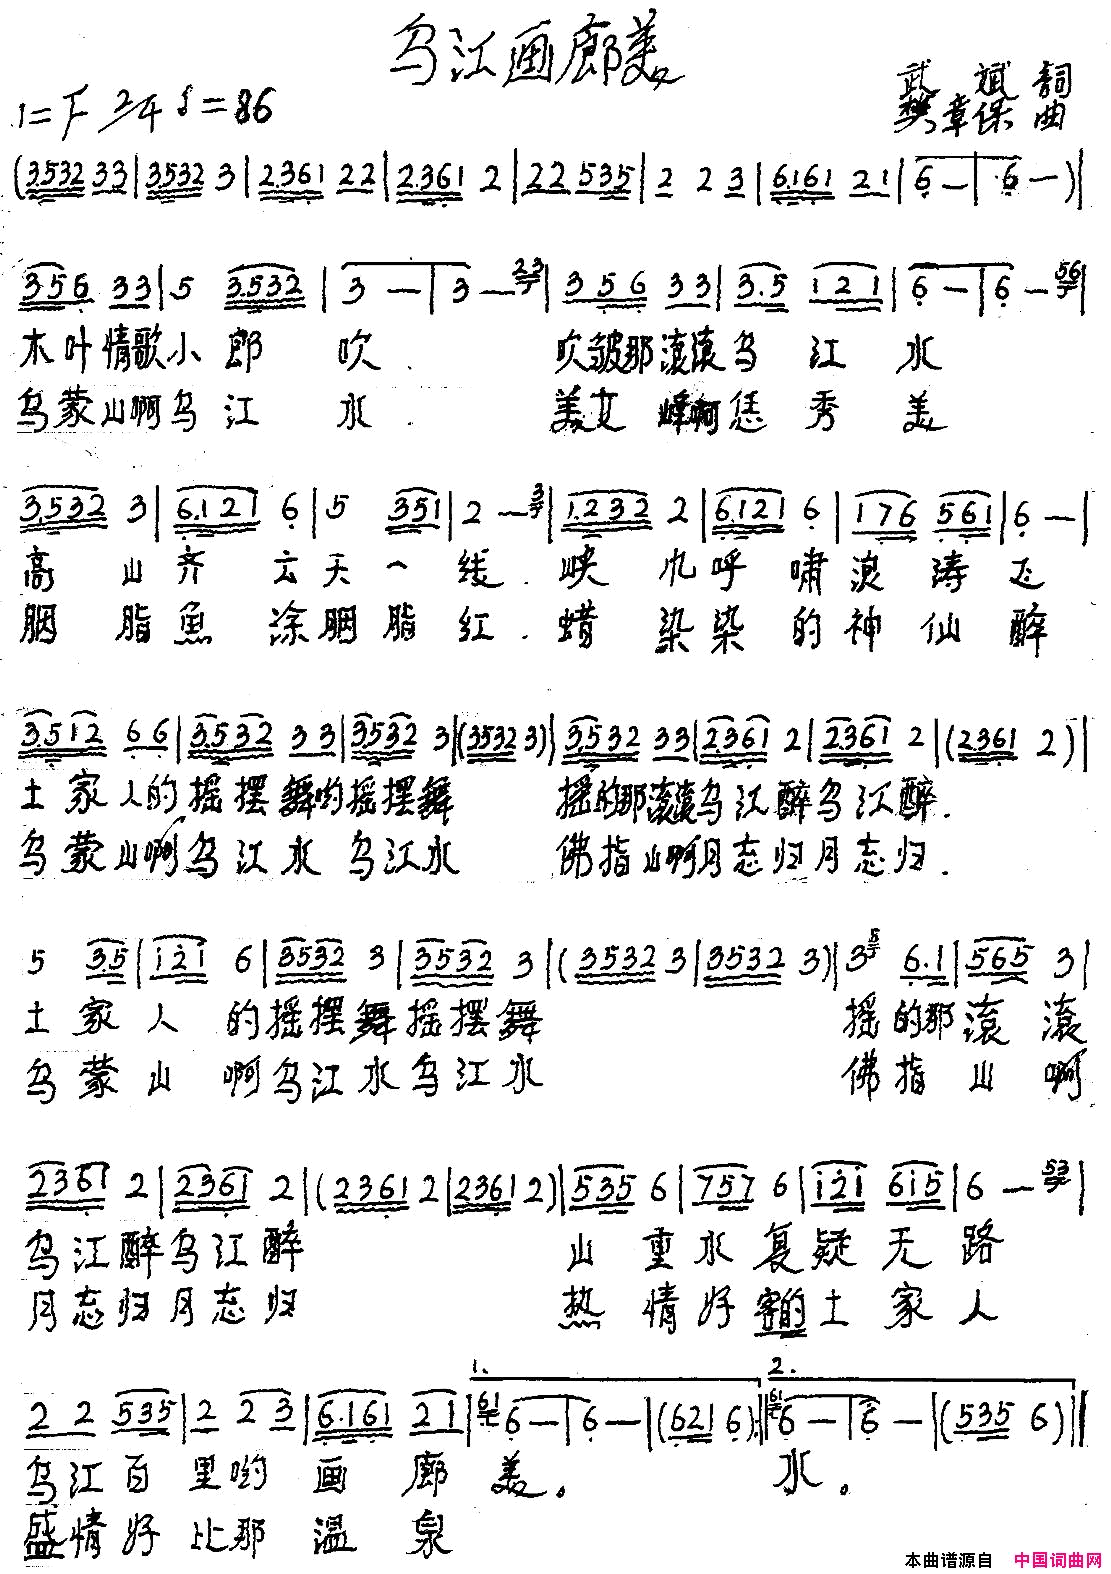 乌江画廊美
1=F 2/4 ♩=86
武斌 詞
樊章保 曲
(3.532 33|3532 3|2.361 22|2.361 2|22 535|2 2 3|6.161 21|6 —|6 —)|
356 33|5 3.532|3 —|3 — 23|356 33|3.5 121|6 —|6 — 56|
木叶情歌小郎吹. 吹皱那滚滚乌江水
乌蒙山啊乌江水. 美女峰啊恁秀美
3.532 3|6.121 6|5 351|2 — 3|1.232 2|6.121 6|176 561|6 —|
高山齐云天一线. 峡九呼啸浪涛飞
胭脂魚涂胭脂红. 蜡染染的神仙醉
3512 66|3.532 33|3532 3|(3532 3)|3.532 33|2361 2|2361 2|(2361 2)|
土家人的摇摆舞哟摇摆舞 摇的那滚滚乌江醉乌江醉.
乌蒙山啊乌江水 乌江水 佛指山啊月忘归月忘归.
5 3.5|121 6|3532 3|3532 3|(3532 3|3532 3)|3 5 6.1|565 3|
土家人的摇摆舞摇摆舞 摇的那滚滚
乌蒙山啊乌江水乌江水 佛指山啊
2361 2|2361 2|(2361 2|2361 2)|535 6|757 6|121 615|6 — 53|
乌江醉乌江醉 山重水复疑无路
月忘归月忘归 热情好客的土家人
1. 2.
2 2 535|2 2 3|6.161 21|61 6 —|6 —|(621 6):|61 6 —|6 —|(535 6)|
乌江百里哟画廊美。 水。
盛情好比那温泉
本曲谱源自 中国词曲网